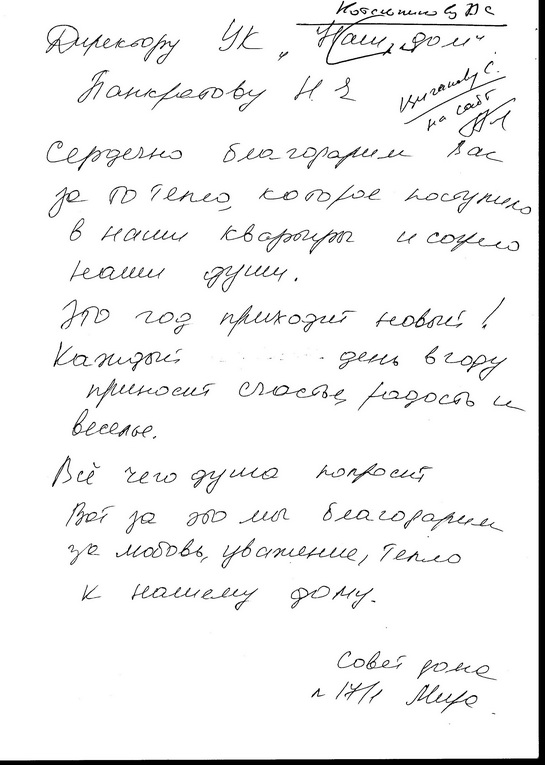 Директору УК „Наш дом“
Панкратову Н. Е
на сайт
Сердечно благодарим Вас
за то тепло, которое поступило
в наши квартиры и согрело
наши души.
Это год приходит новый!
Каждый день в году
приносит счастье, радость и
веселье.
Всё чего душа попросит
Вот за это мы благодарим
за любовь, уважение, тепло
к нашему дому.
Совет дома
л 17/1 Мира